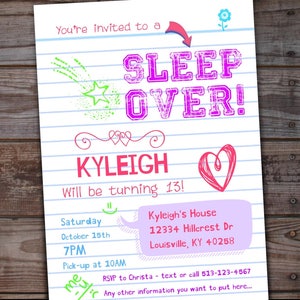 You're invited to a
SLEEP
OVER!
KYLEIGH
Will be turning 13!
Saturday
October 25th
7PM
Pick-up at 10AM
Kyleigh's House
12334 Hillcrest Dr
Louisville, KY 40258
RSVP to Christa - text or call 513-123-4567
Any other information you want to put here...